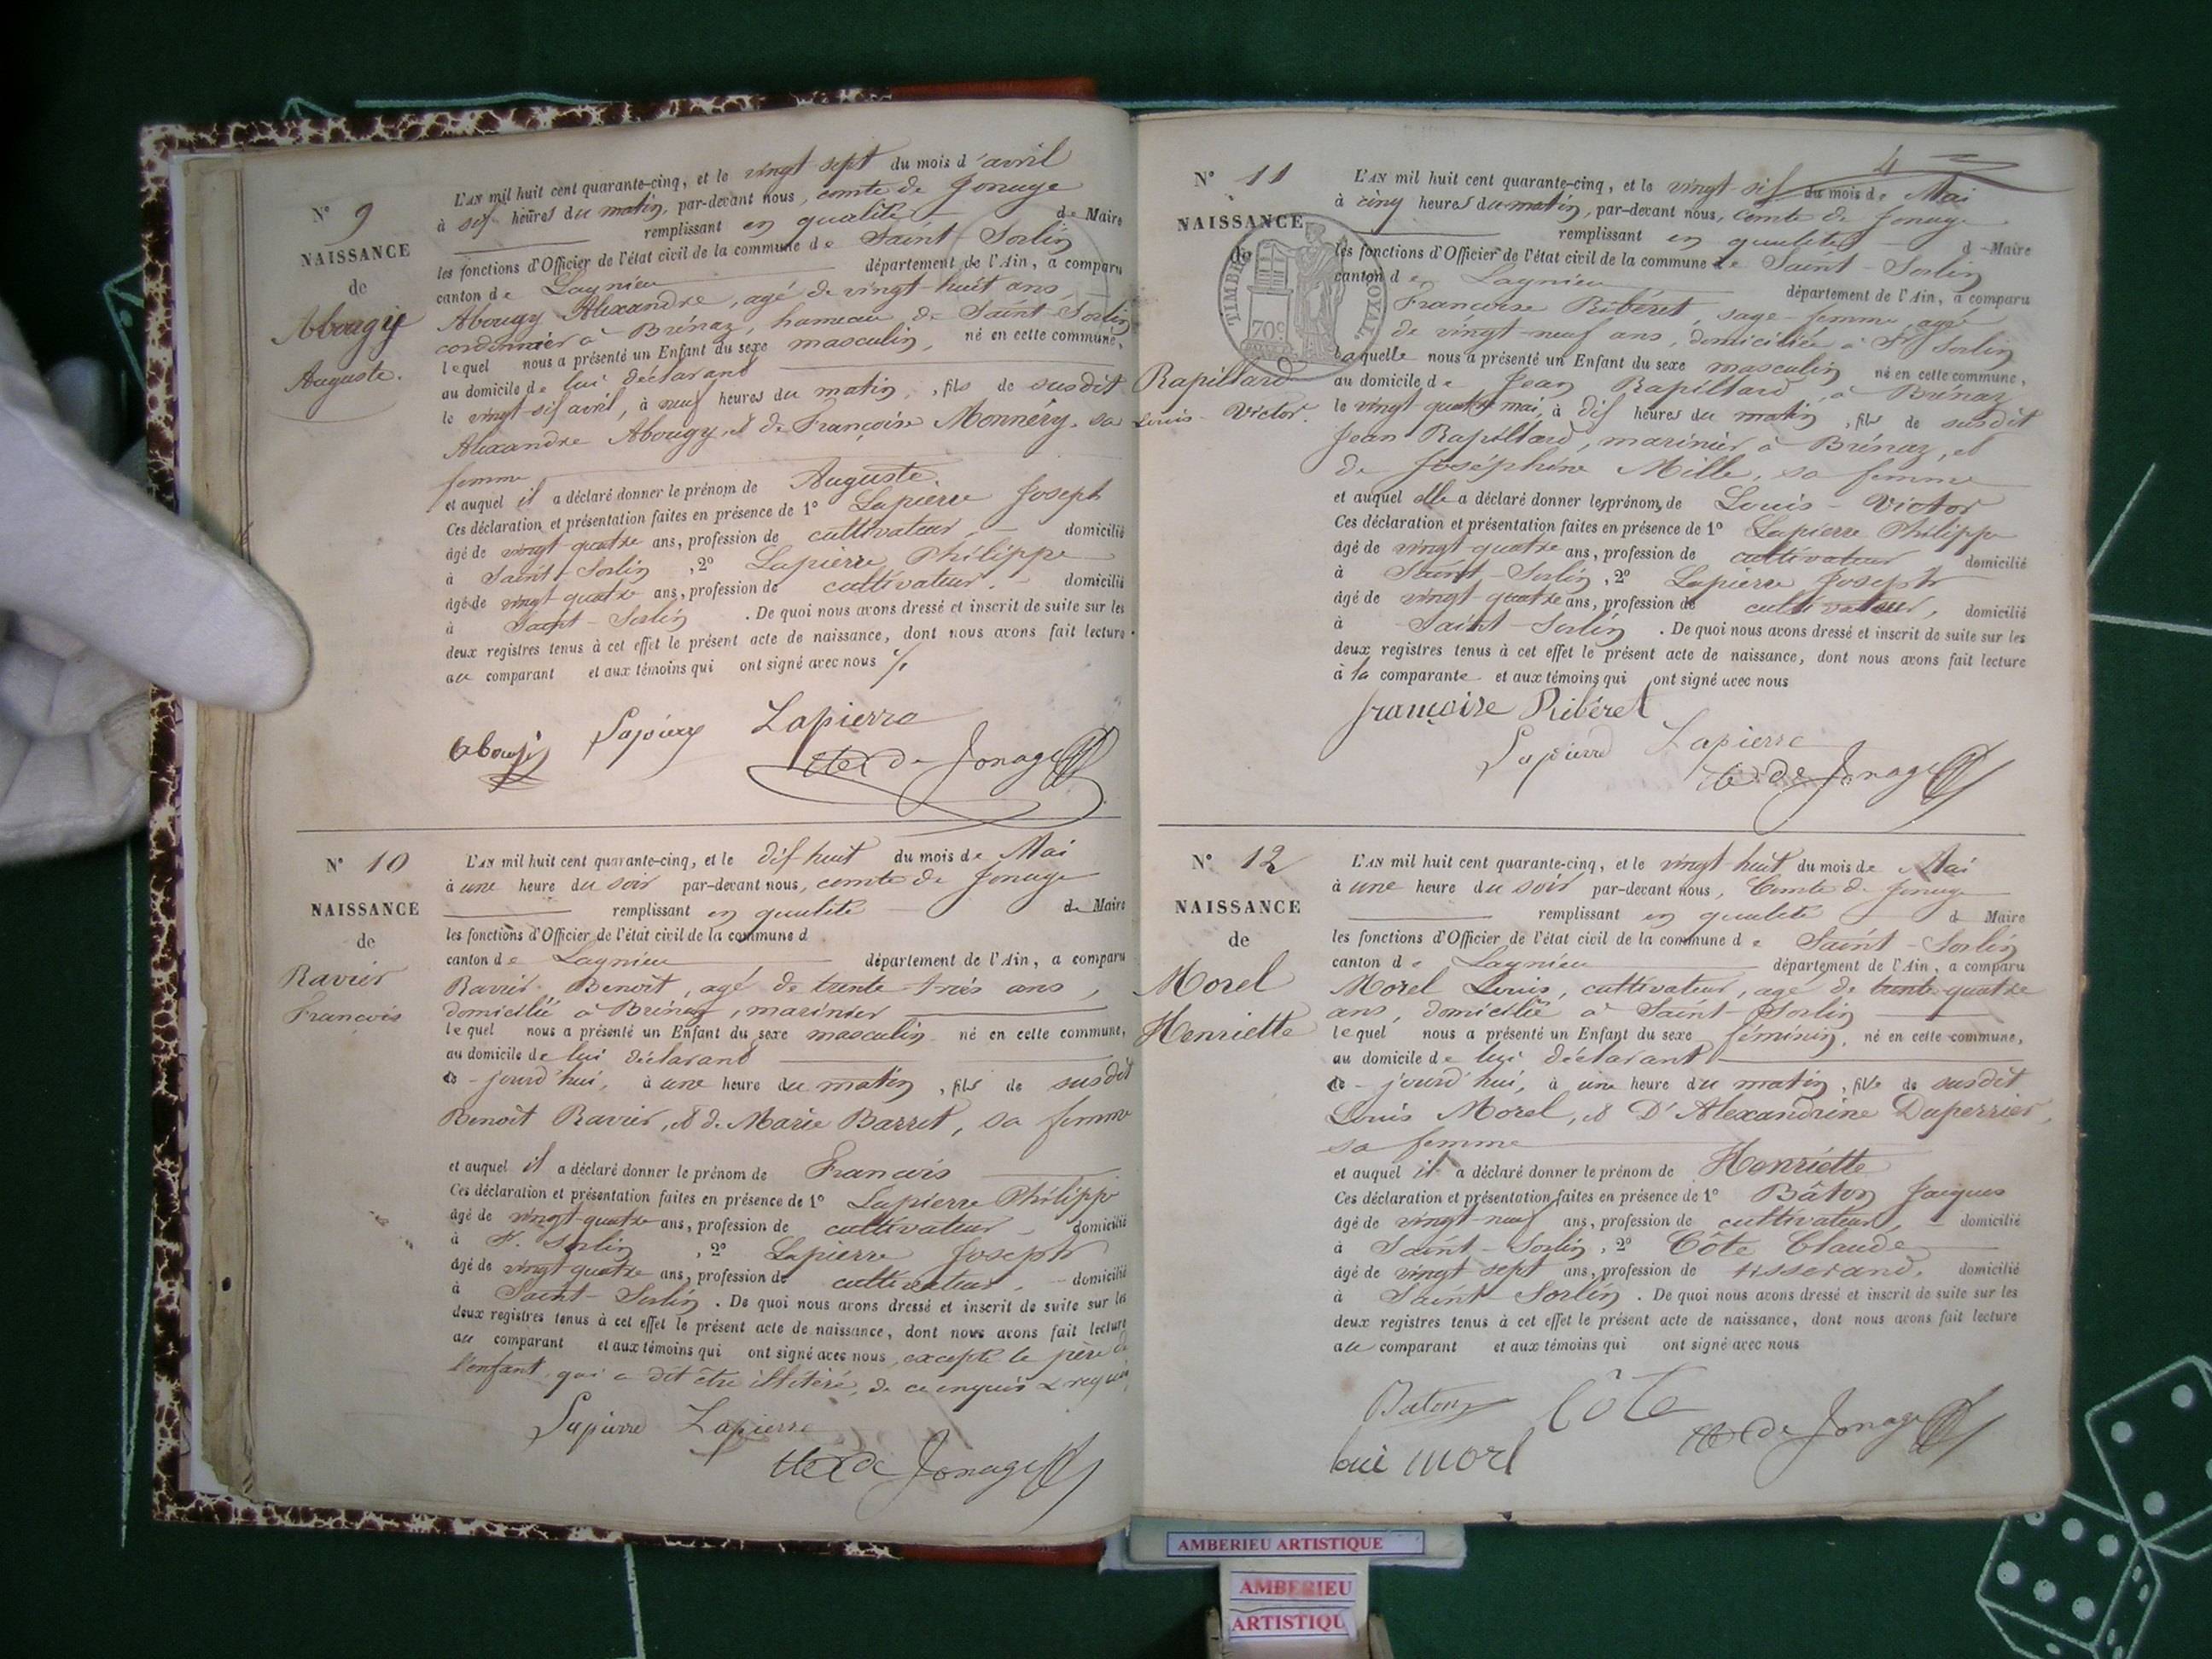 N° 9
NAISSANCE
de
Abougy
Auguste.
L'AN mil huit cent quarante-cinq, et le vingt sept du mois d'avril
à six heures du matin, par-devant nous, comte de Jonage
remplissant en qualité de Maire
les fonctions d'Officier de l'état civil de la commune de Saint-Sorlin
canton de Lagnieu département de l'Ain, a comparu
Abougy Alexandre, agé de vingt-huit ans,
cordonnier à Brénaz, hameau de Saint-Sorlin
lequel nous a présenté un Enfant du sexe masculin, né en cette commune,
au domicile de lui déclarant
le vingt-six avril, à neuf heures du matin, fils de susdit
Alexandre Abougy, et de Françoise Monnéry, sa
femme
et auquel il a déclaré donner le prénom de Auguste.
Ces déclaration et présentation faites en présence de 1° Lapierre Joseph
âgé de vingt-quatre ans, profession de cultivateur, domicilié
à Saint-Sorlin, 2° Lapierre Philippe
âgé de vingt-quatre ans, profession de cultivateur. domicilié
à Saint-Sorlin. De quoi nous avons dressé et inscrit de suite sur les
deux registres tenus à cet effet le présent acte de naissance, dont nous avons fait lecture
au comparant et aux témoins qui ont signé avec nous
Lapierre
de Jonage
N° 10
NAISSANCE
de
Ravier
Francois
L'AN mil huit cent quarante-cinq, et le dix huit du mois de Mai
à une heure du soir par-devant nous, comte de Jonage
remplissant en qualité de Maire
les fonctions d'Officier de l'état civil de la commune d
canton de Lagnieu département de l'Ain, a comparu
Ravier Benoît, agé de trente-trois ans,
domicilié à Brénaz, marinier
lequel nous a présenté un Enfant du sexe masculin né en cette commune,
au domicile de lui déclarant
ce-jourd'hui, à une heure du matin, fils de susdit
Benoît Ravier, et de Marie Barret, sa femme
et auquel il a déclaré donner le prénom de Francois
Ces déclaration et présentation faites en présence de 1° Lapierre Philippe
âgé de vingt-quatre ans, profession de cultivateur domicilié
à St. Sorlin, 2° Lapierre Joseph
âgé de vingt-quatre ans, profession de cultivateur, domicilié
à Saint-Sorlin. De quoi nous avons dressé et inscrit de suite sur les
deux registres tenus à cet effet le présent acte de naissance, dont nous avons fait lecture
au comparant et aux témoins qui ont signé avec nous, excepté le père de
l'enfant qui a dit être illitéré, de ce enquis & requis
Lapierre Lapierre
de Jonage
4
N° 11
NAISSANCE
de
TIMBRE ROYAL.
70c
Rapillard
Louis-Victor.
L'AN mil huit cent quarante-cinq, et le vingt-six du mois de Mai
à cinq heures du matin, par-devant nous, comte de Jonage
remplissant en qualité d Maire
les fonctions d'Officier de l'état civil de la commune de Saint-Sorlin
canton de Lagnieu département de l'Ain, a comparu
Françoise Ribéret, sage-femme, agé
de vingt-neuf ans, domiciliée à St Sorlin
laquelle nous a présenté un Enfant du sexe masculin né en cette commune,
au domicile de Jean Rapillard, à Brénaz
le vingt-quatre mai, à dix heures du matin, fils de susdit
Jean Rapillard, marinier à Brénaz, et
de Joséphine Mille, sa femme
et auquel elle a déclaré donner les prénoms de Louis-Victor
Ces déclaration et présentation faites en présence de 1° Lapierre Philippe
âgé de vingt-quatre ans, profession de cultivateur domicilié
à Saint-Sorlin, 2° Lapierre Joseph
âgé de vingt-quatre ans, profession de cultivateur, domicilié
à Saint-Sorlin. De quoi nous avons dressé et inscrit de suite sur les
deux registres tenus à cet effet le présent acte de naissance, dont nous avons fait lecture
à la comparante et aux témoins qui ont signé avec nous
françoise Ribéret
Lapierre Lapierre
de Jonage
N° 12
NAISSANCE
de
Morel
Henriette
L'AN mil huit cent quarante-cinq, et le vingt huit du mois de Mai
à une heure du soir par-devant nous, Comte de Jonage
remplissant en qualité d Maire
les fonctions d'Officier de l'état civil de la commune de Saint-Sorlin
canton de Lagnieu département de l'Ain, a comparu
Morel Louis, cultivateur, agé de trente-quatre
ans, domicilié à Saint-Sorlin
lequel nous a présenté un Enfant du sexe féminin, né en cette commune,
au domicile de lui déclarant
ce-jourd'hui, à une heure du matin, fille de susdit
Louis Morel, et D'Alexandrine Duperrier,
sa femme
et auquel il a déclaré donner le prénom de Henriette
Ces déclaration et présentation faites en présence de 1° Bâton Jacques
âgé de vingt-neuf ans, profession de cultivateur, domicilié
à Saint-Sorlin, 2° Côte Claude
âgé de vingt sept ans, profession de tisserand, domicilié
à Saint-Sorlin. De quoi nous avons dressé et inscrit de suite sur les
deux registres tenus à cet effet le présent acte de naissance, dont nous avons fait lecture
au comparant et aux témoins qui ont signé avec nous
Baton Côte
de Jonage
loui morl
AMBERIEU ARTISTIQUE
AMBERIEU
ARTISTIQU